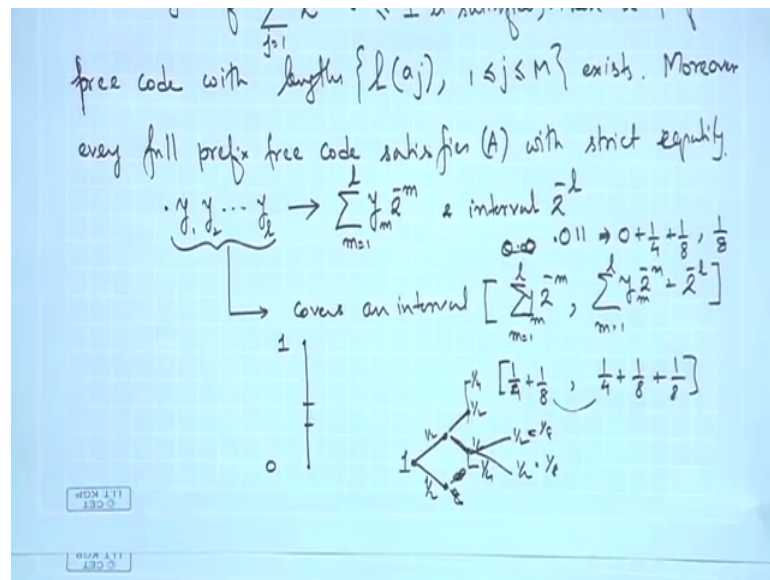 ∑ j=1
free code with lengths {l(aj), 1≤j≤M} exists. Moreover
every full prefix free code satisfies (A) with strict equality.
.y₁y₂...y_l → ∑_{m=1}^{l} y_m 2^{-m} & interval 2^{-l}
.011 ⇒ 0+1/4+1/8, 1/8
covers an interval [∑_{m=1}^{l} y_m 2^{-m}, ∑_{m=1}^{l} y_m 2^{-m} + 2^{-l}]
1
[1/4+1/8, 1/4+1/8+1/8]
1/4
1/2
1/2
1/2 = 1/8
1
1/4
1/2 · 1/8
0
1/2
© CET
IIT KGP
© CET
IIT KGP